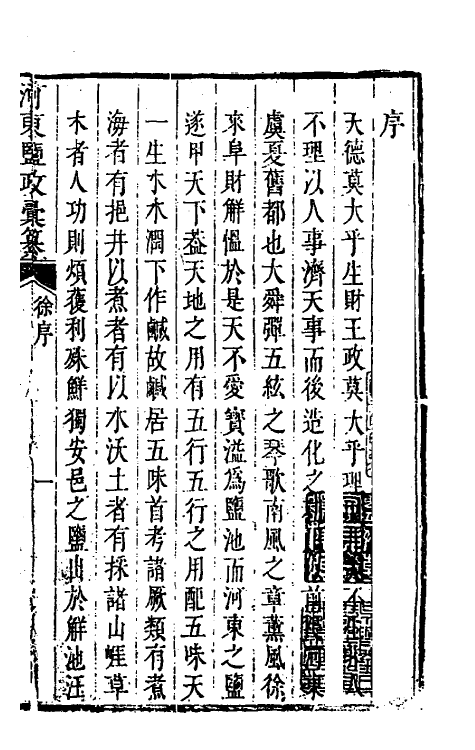 序
天德莫大乎生財王政莫大乎理
不理以人事濟天事而後造化之前河東
虞夏舊都也大舜彈五絃之琴歌南風之章薰風徐
來阜財解慍於是天不愛寶溢爲鹽池而河東之鹽
遂甲天下蓋天地之用有五行五行之用配五味天
一生水水潤下作鹹故鹹居五味首考諸厥類有煮
海者有挹井以煮者有以水沃土者有採諸山崖草
木者人功則煩獲利殊鮮獨安邑之鹽出於解池汪
河東鹽政彙纂
徐序
一